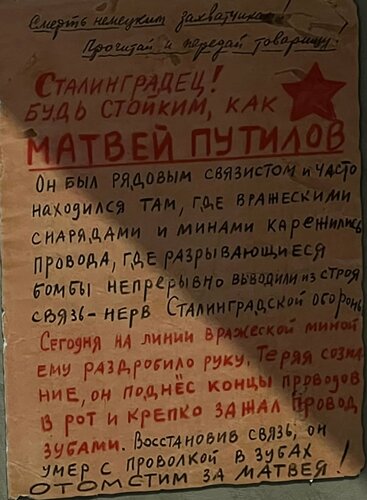 Смерть немецким захватчикам!
Прочитай и передай товарищу!
СТАЛИНГРАДЕЦ!
БУДЬ СТОЙКИМ, КАК
МАТВЕЙ ПУТИЛОВ
ОН БЫЛ РЯДОВЫМ СВЯЗИСТОМ И ЧАСТО
НАХОДИЛСЯ ТАМ, ГДЕ ВРАЖЕСКИМИ
СНАРЯДАМИ И МИНАМИ КАРЕЖИЛИСЬ
ПРОВОДА, ГДЕ РАЗРЫВАЮЩИЕСЯ
БОМБЫ НЕПРЕРЫВНО ВЫВОДИЛИ ИЗ СТРОЯ
СВЯЗЬ-НЕРВ СТАЛИНГРАДСКОЙ ОБОРОНЫ
СЕГОДНЯ НА ЛИНИИ ВРАЖЕСКОЙ МИНОЙ
ЕМУ РАЗДРОБИЛО РУКУ. ТЕРЯЯ СОЗНА
НИЕ, ОН ПОДНЁС КОНЦЫ ПРОВОДОВ
В РОТ И КРЕПКО ЗАЖАЛ ПРОВОД
ЗУБАМИ. ВОССТАНОВИВ СВЯЗЬ, ОН
УМЕР С ПРОВОЛКОЙ В ЗУБАХ
ОТОМСТИМ ЗА МАТВЕЯ!